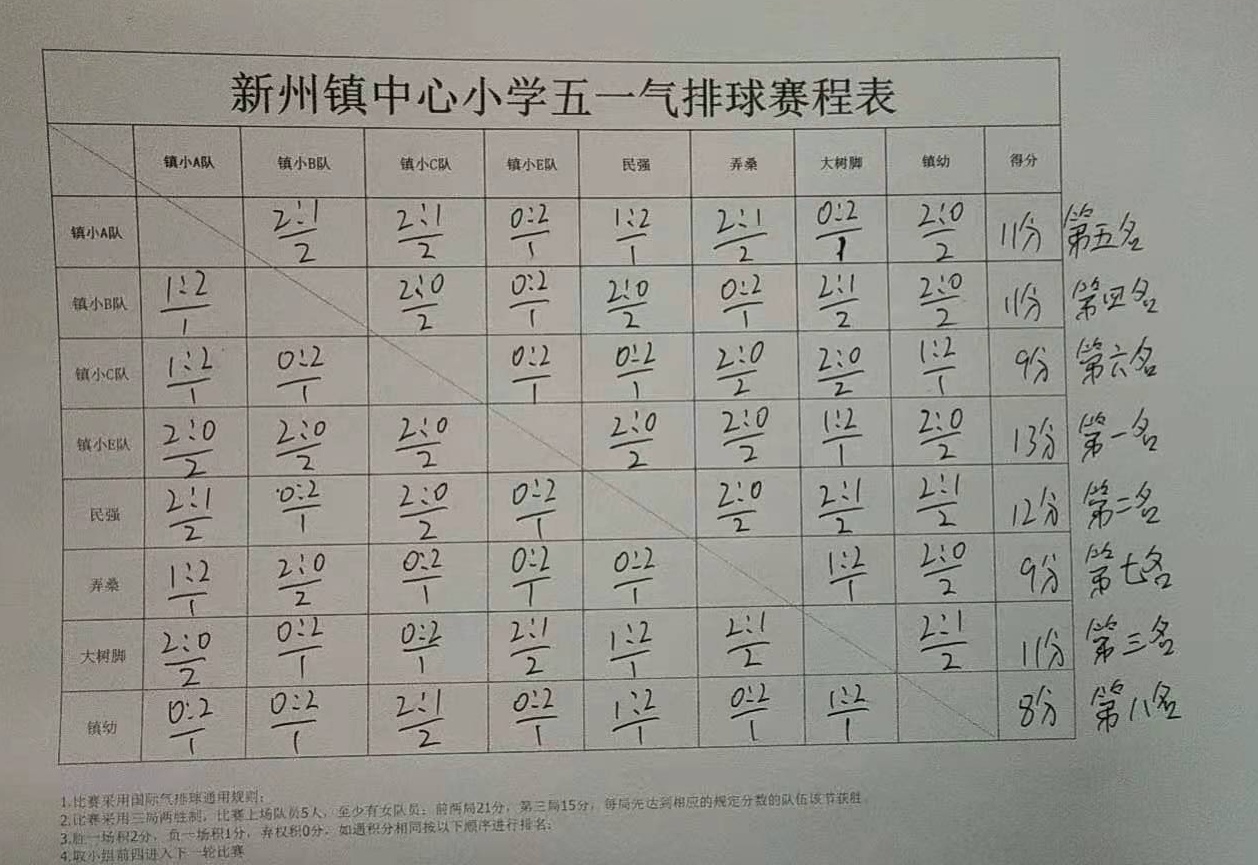 新州镇中心小学五一气排球赛程表
镇小A队 镇小B队 镇小C队 镇小E队 民强 弄桑 大树脚 镇幼 得分
镇小A队 2:1/2 2:1/2 0:2/1 1:2/1 2:1/2 0:2/1 2:0/2 11分 第五名
镇小B队 1:2/1 2:0/2 0:2/1 2:0/2 0:2/1 2:1/2 2:0/2 11分 第四名
镇小C队 1:2/1 0:2/1 0:2/1 0:2/1 2:0/2 2:0/2 1:2/1 9分 第六名
镇小E队 2:0/2 2:0/2 2:0/2 2:0/2 2:0/2 1:2/1 2:0/2 13分 第一名
民强 2:1/2 0:2/1 2:0/2 0:2/1 2:0/2 2:1/2 2:1/2 12分 第二名
弄桑 1:2/1 2:0/2 0:2/1 0:2/1 0:2/1 1:2/1 2:0/2 9分 第七名
大树脚 2:0/2 0:2/1 0:2/1 2:1/2 1:2/1 2:1/2 2:1/2 11分 第三名
镇幼 0:2/1 0:2/1 2:1/2 0:2/1 1:2/1 0:2/1 1:2/1 8分 第八名
1.比赛采用国际气排球通用规则；
2.比赛采用三局两胜制，比赛上场队员5人，至少有女队员；前两局21分，第三局15分，每局先达到相应的规定分数的队伍该节获胜
3.胜一场积2分，负一场积1分，弃权积0分，如遇积分相同按以下顺序进行排名；
4.取小组前四进入下一轮比赛